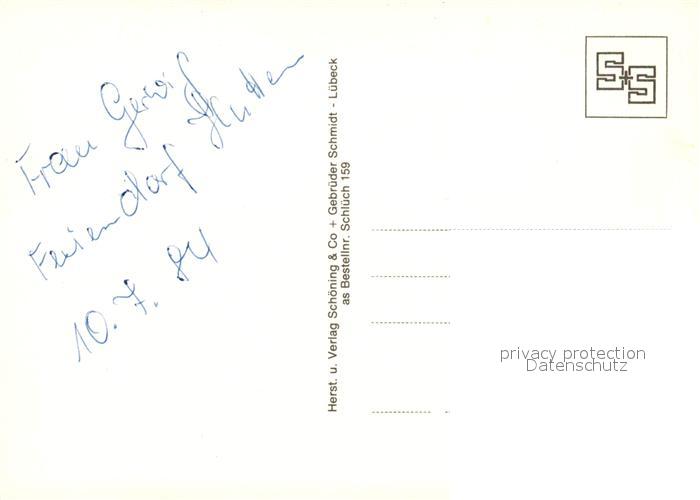 Frau Gerwif
Feriendorf Hutten
10.7.84
Herst. u. Verlag Schöning & Co + Gebrüder Schmidt - Lübeck
as Bestellnr. Schlüch 159
S+S
privacy protection
Datenschutz